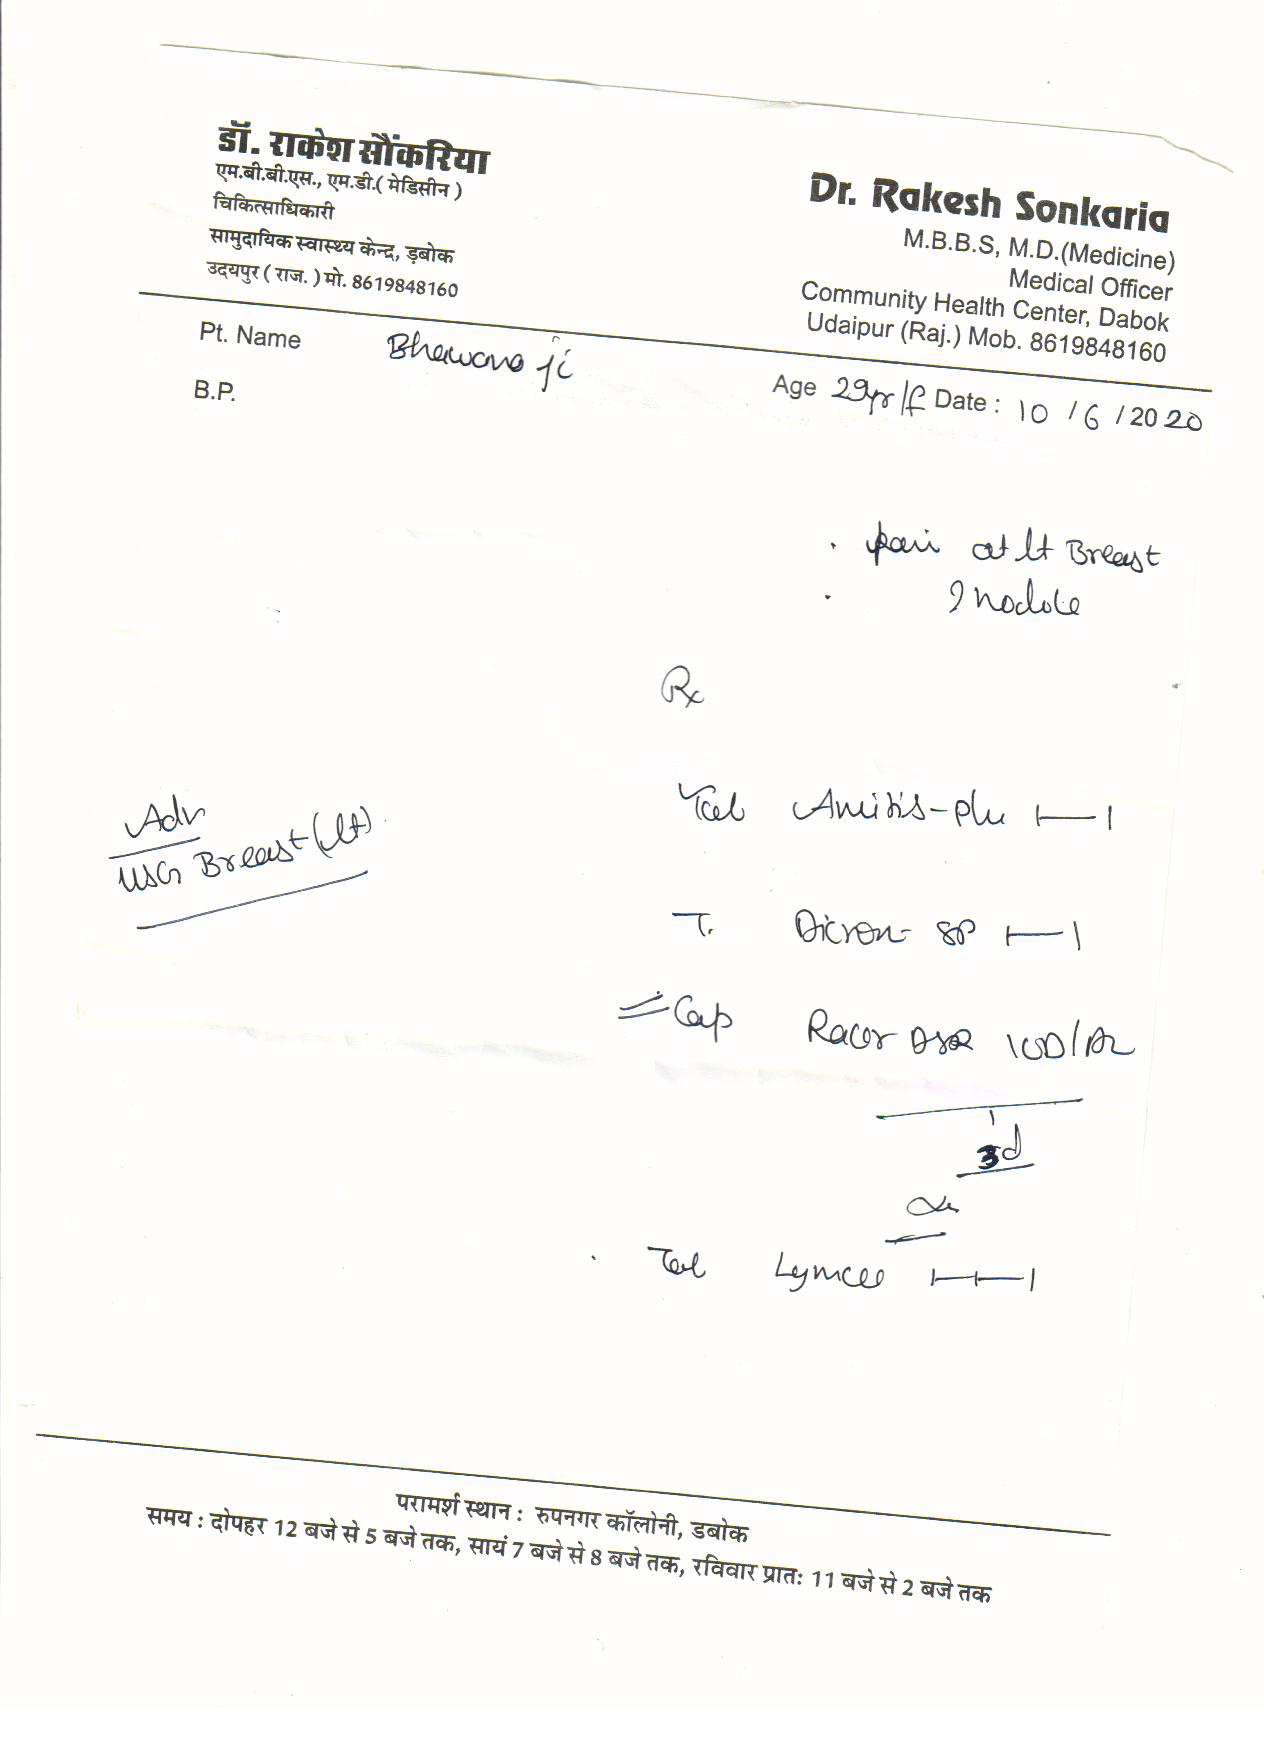 डॉ. राकेश सौंकरिया
एम.बी.बी.एस., एम.डी.( मेडिसीन )
चिकित्साधिकारी
सामुदायिक स्वास्थ्य केन्द्र, ड़बोक
उदयपुर ( राज. ) मो. 8619848160
Dr. Rakesh Sonkaria
M.B.B.S, M.D.(Medicine)
Medical Officer
Community Health Center, Dabok
Udaipur (Raj.) Mob. 8619848160
Pt. Name Bhawana ji
Age 29yr/f Date : 10 / 6 / 2020
B.P.
. pain at lt Breast
. ? nodule
Rx
Adv
USG Breast (lt)
Tab
T. SP
Cap DSR 1OD
3d
Tab Lymcee
परामर्श स्थान : रुपनगर कॉलोनी, डबोक
समय : दोपहर 12 बजे से 5 बजे तक, सायं 7 बजे से 8 बजे तक, रविवार प्रातः 11 बजे से 2 बजे तक